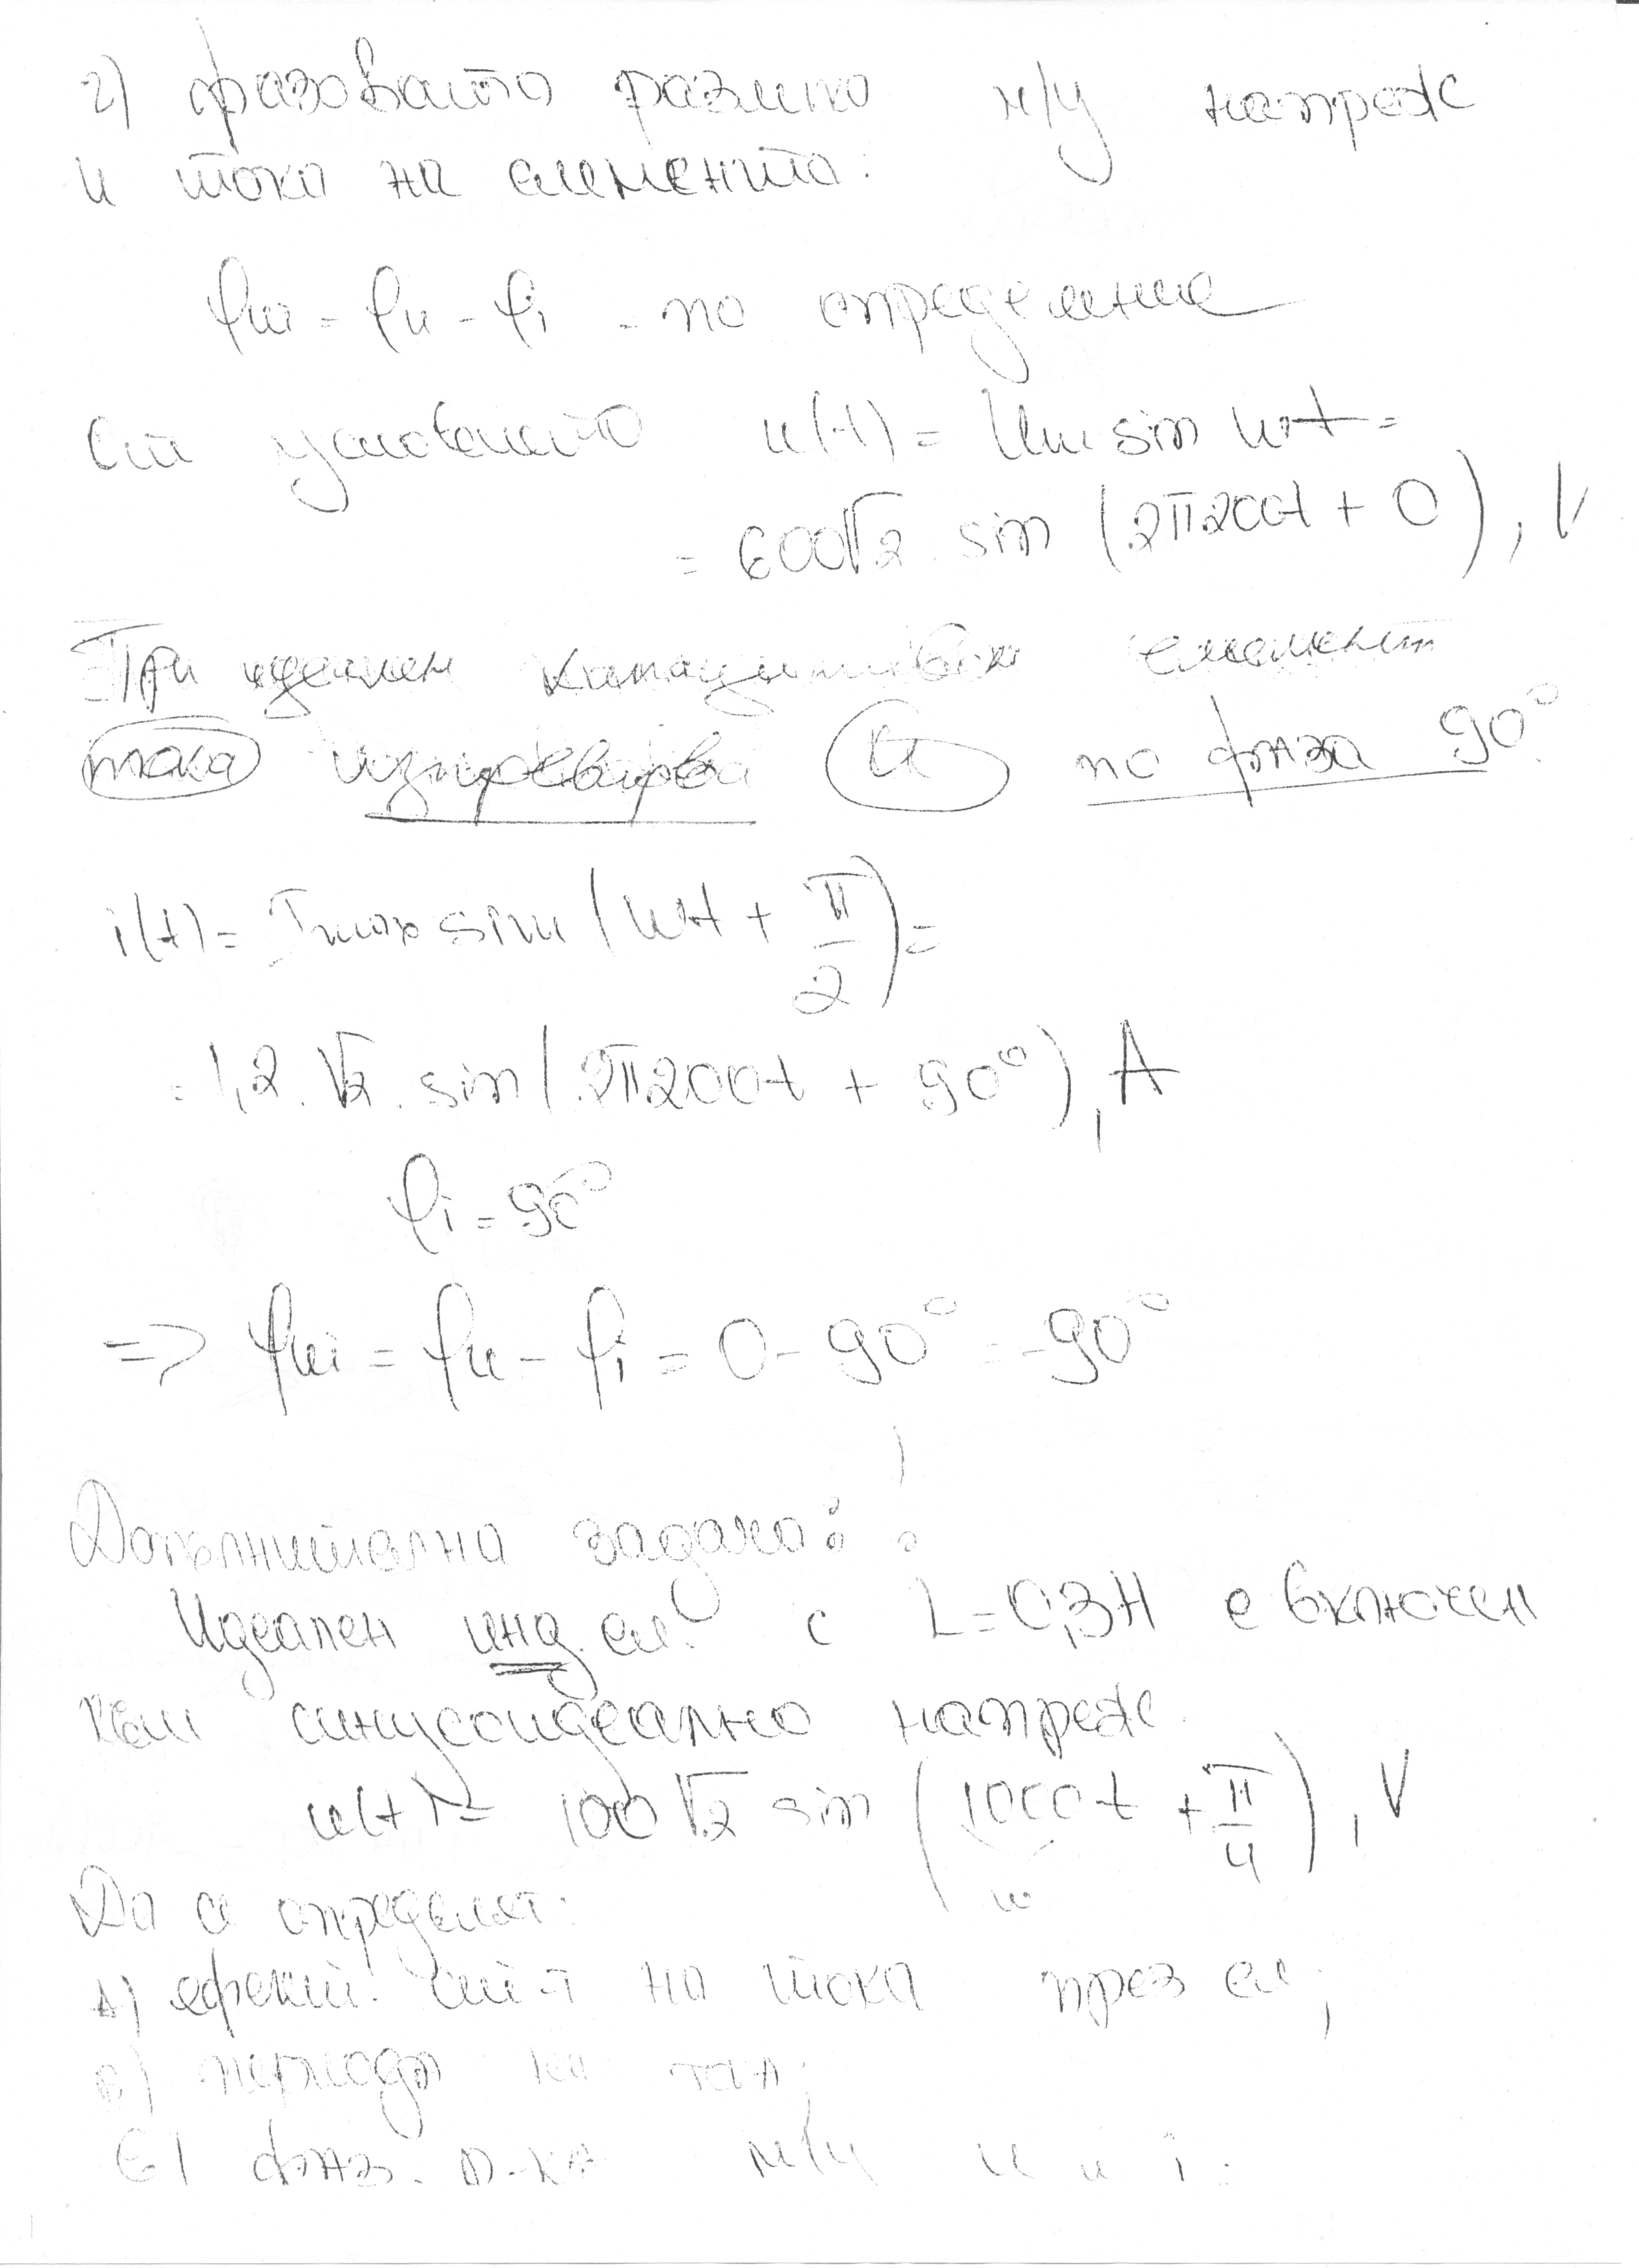 2) фазовата разлика м/у напреж
и тока на елемента:
φui = φu - φi - по определение
От условието u(t) = Um sin ωt =
= 600√2 . sin (2π200t + 0), V
При идеален капацитивен елемент
тока изпреварва U по фаза 90°
i(t) = Imax sin (ωt + π/2) =
= 1,2 . √2 . sin (2π200t + 90°), A
φi = 90°
=> φui = φu - φi = 0 - 90° = -90°
Допълнителна задача:!
Идеален инд. ел. с L = 0,3H е включен
към синусоидеално напреж.
u(t) = 100√2 sin (1000t + π/4), V
ω
Да се определят:
А) ефект. ст-т на тока през ел;
В) периода на
С) фаз. р-ка м/у u и i.